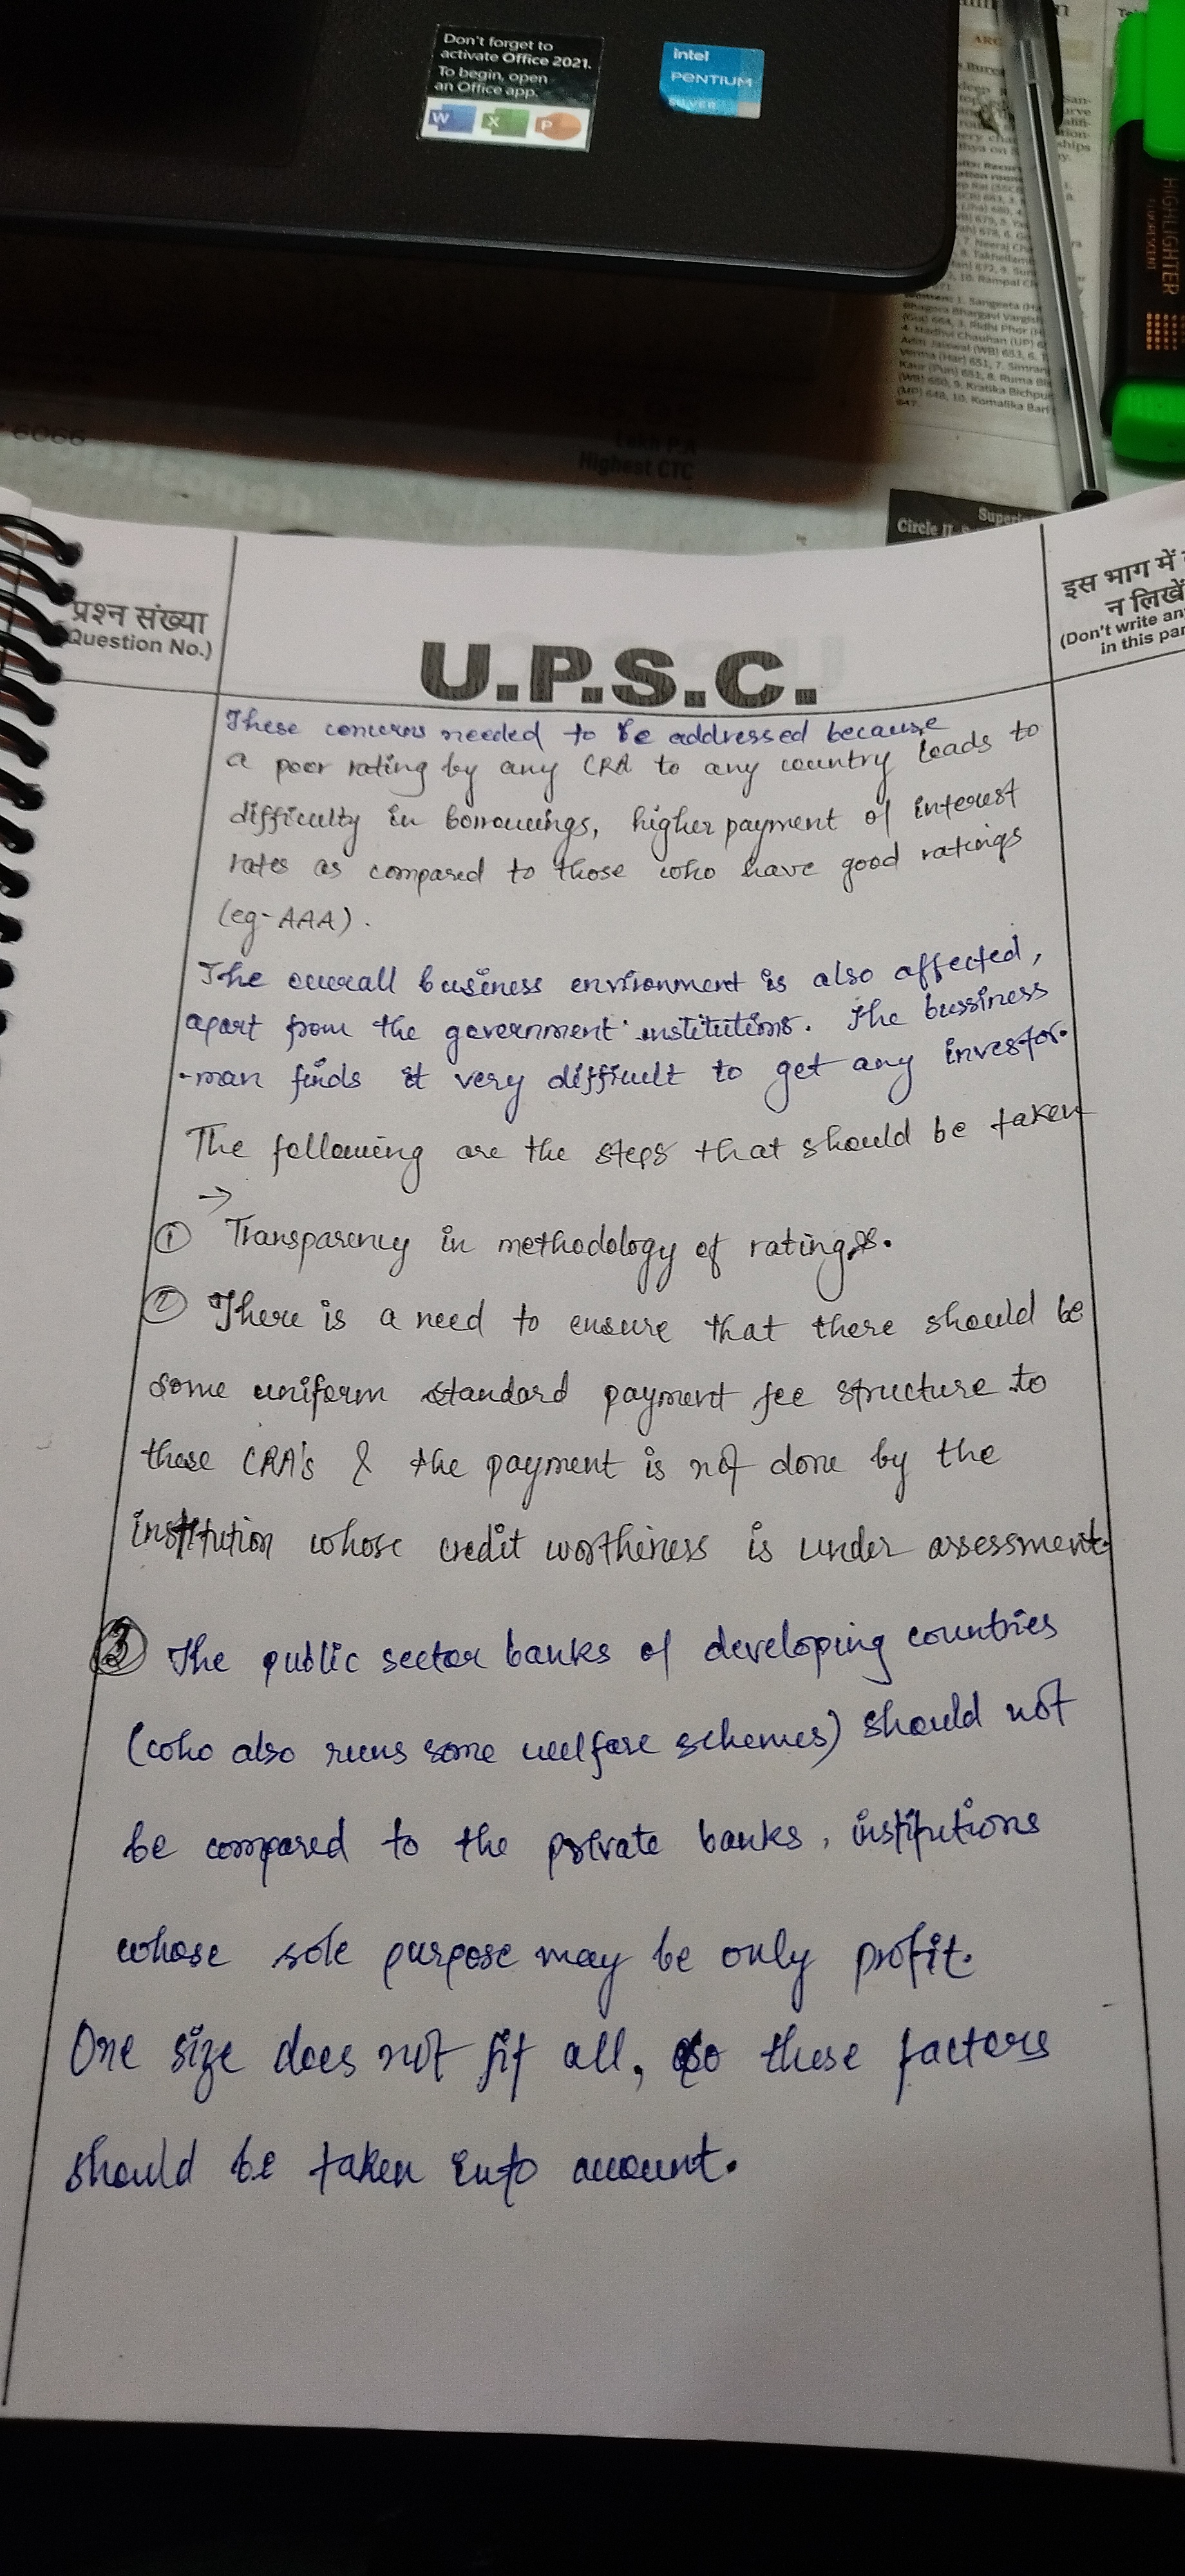 Don't forget to
activate Office 2021.
To begin, open
an Office app.
W X P
intel
PENTIUM
SILVER
HIGHLIGHTER
FLUORESCENT
6066
Lakh P.A
Highest CTC
Circle II
प्रश्न संख्या
(Question No.)
U.P.S.C.
इस भाग में
न लिखें
(Don't write an
in this par
These concerns needed to be addressed because
a poor rating by any CRA to any country leads to
difficulty in borrowings, higher payment of interest
rates as compared to those who have good ratings
(eg-AAA).
The overall business environment is also affected,
apart from the government institutions. The bussiness
-man finds it very difficult to get any investor.
The following are the steps that should be taken
→
① Transparency in methodology of ratings.
② There is a need to ensure that there should be
some uniform standard payment fee structure to
these CRA's & the payment is not done by the
institution whose credit worthiness is under assessment.
③ The public sector banks of developing countries
(who also runs some welfare schemes) should not
be compared to the private banks, institutions
whose sole purpose may be only profit.
One size does not fit all, so these factors
should be taken into account.